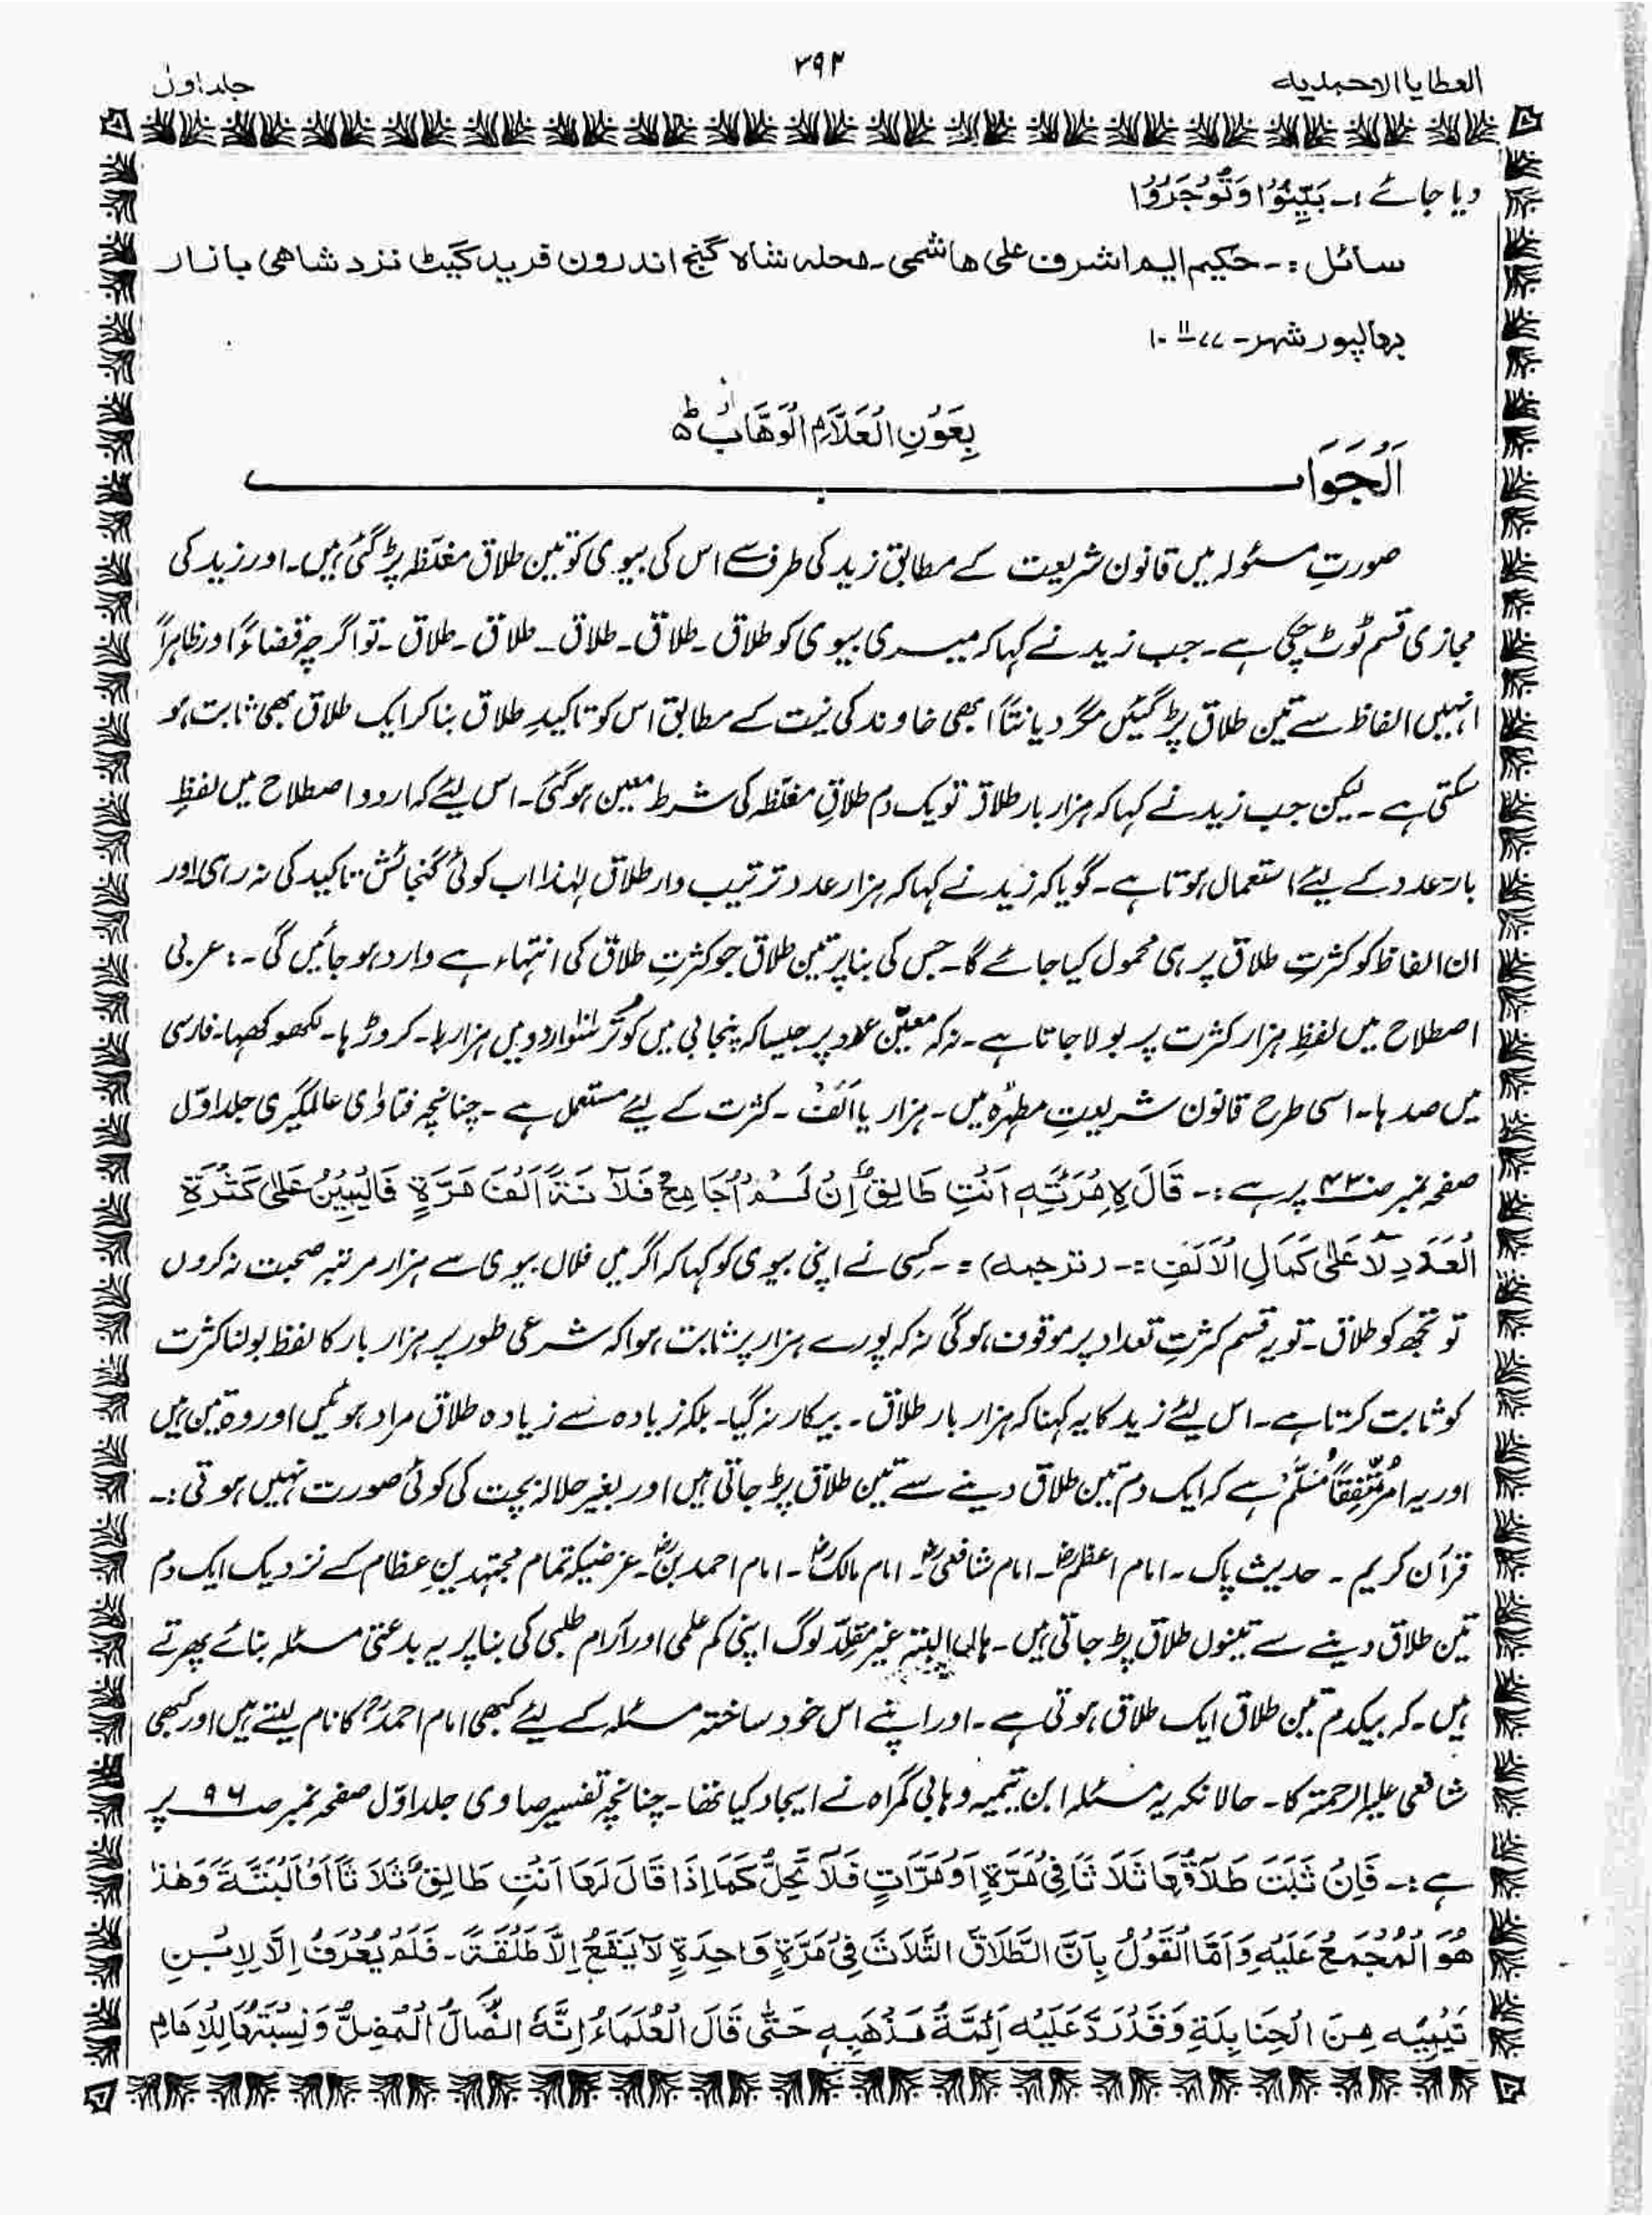 العطایا الاحمدیه
۳۹۲
جلد اول
دیا جائے :۔ بَیِّنُوْا وَتُوْجَرُوْا
سائل :۔ حکیم ایم اشرف علی ھاشمی۔ محلہ شاہ گنج اندرون فرید گیٹ نزد شاھی بازار
بھالپور شہر۔ ۷۷-۱۱-۱۰
بِعَوْنِ الْعَلَّامِ الْوَھَّابُ ط
اَلْجَوَاب
صورتِ مسئولہ میں قانون شریعت کے مطابق زید کی طرف سے اس کی بیوی کو تین طلاق مغلّظہ پڑ گئی ہیں۔ اور زید کی
مجازی قسم ٹوٹ چکی ہے۔ جب زید نے کہا کہ میری بیوی کو طلاق۔ طلاق۔ طلاق۔ طلاق۔ طلاق۔ تو اگرچہ قضاءً اور ظاہراً
انہیں الفاظ سے تین طلاق پڑ گئیں مگر دیانتاً ابھی خاوند کی نیت کے مطابق اس کو تاکیدِ طلاق بنا کر ایک طلاق بھی ثابت ہو
سکتی ہے۔ لیکن جب زید نے کہا کہ ہزار بار طلاق تو یک دم طلاقِ مغلّظہ کی شرط معین ہو گئی۔ اس لیئے کہ اردو اصطلاح میں لفظِ
بار عدد کے لیئے استعمال ہوتا ہے۔ گویا کہ زید نے کہا کہ ہزار عدد ترتیب وار طلاق لہٰذا اب کوئی گنجائش تاکید کی نہ رہی اور
ان الفاظ کو کثرتِ طلاق پر ہی محمول کیا جائے گا۔ جس کی بنا پر تین طلاق جو کثرتِ طلاق کی انتہاء ہے وارد ہو جائیں گی۔: عربی
اصطلاح میں لفظِ ہزار کثرت پر بولا جاتا ہے۔ نہ کہ معیّن عدد پر جیسا کہ پنجابی میں اردو میں ہزارہا۔ کروڑہا۔ لکھو کھہا۔ فارسی
میں صدہا۔ اسی طرح قانون شریعتِ مطہرّہ میں۔ ہزار یا اَلْفٌ۔ کثرت کے لیے مستعمل ہے۔ چنانچہ فتاوٰی عالمگیری جلد اوّل
صفحہ نمبر صـ۴۳۰ پر ہے :۔ قَالَ لِاِمْرَتِہٖ اَنْتِ طَالِقٌ اِنْ لَمْ اُجَامِعْ فَلَانَۃً اَلْفَ مَرَّۃٍ فَالْیَمِیْنُ عَلٰی کَثْرَۃِ
الْعَدَدِ لَا عَلٰی کَمَالِ الْاَلَفِ :۔ (ترجمہ) :۔ کسی نے اپنی بیوی کو کہا کہ اگر میں فلاں بیوی سے ہزار مرتبہ صحبت نہ کروں
تو تجھ کو طلاق۔ تو یہ قسم کثرتِ تعداد پر موقوف ہو گی نہ کہ پورے ہزار پر ثابت ہوا کہ شرعی طور پر ہزار بار کا لفظ بولنا کثرت
کو ثابت کرتا ہے۔ اس لیئے زید کا یہ کہنا کہ ہزار بار طلاق۔ بیکار نہ گیا۔ بلکہ زیادہ سے زیادہ طلاق مراد ہوئیں اور وہ تین ہیں
اور یہ امر مُتَّفِقاً مُسَلَّم ہے کہ ایک دم تین طلاق دینے سے تین طلاق پڑ جاتی ہیں اور بغیر حلالہ بچت کی کوئی صورت نہیں ہوتی :۔
قرآن کریم۔ حدیث پاک۔ امام اعظمؓ۔ امام شافعیؓ۔ امام مالکؓ۔ امام احمد بنؓ۔ غرضیکہ تمام مجتہدینِ عظام کے نزدیک ایک دم
تین طلاق دینے سے تینوں طلاق پڑ جاتی ہیں۔ ہاں البتہ غیر مقلّد لوگ اپنی کم علمی اور آرام طلبی کی بنا پر یہ بدعتی مسئلہ بنائے پھرتے
ہیں۔ کہ بیکدم تین طلاق ایک طلاق ہوتی ہے۔ اور اپنے اس خود ساختہ مسئلہ کے لیئے کبھی امام احمدؒ کا نام لیتے ہیں اور کبھی
شافعی علیہ الرحمتہ کا۔ حالانکہ یہ مسئلہ ابن تیمیہ وہابی گمراہ نے ایجاد کیا تھا۔ چنانچہ تفسیر صاوی جلد اوّل صفحہ نمبر صـ۹۶ پر
ہے :۔ فَاِنْ ثَبَتَ طَلَاقُھَا ثَلَاثًا فِیْ مَرَّۃٍ اَوْ مَرَّاتٍ فَلَا تَحِلُّ کَمَا اِذَا قَالَ لَھَا اَنْتِ طَالِقٌ ثَلَاثًا اَوْ اَلْبَتَّۃَ وَھٰذَا
ھُوَ الْمُجْمَعُ عَلَیْہِ وَاَمَّا الْقَوْلُ بِاَنَّ الطَّلَاقَ الثَّلَاثَ فِیْ مَرَّۃٍ وَاحِدَۃٍ لَا یَقَعُ اِلَّا طَلْقَۃً۔ فَلَمْ یُعْرَفْ اِلَّا لِاِبْنِ
تَیْمِیَّہ مِنَ الْحَنَابِلَۃِ وَقَدْ رَدَّ عَلَیْہِ اَئِمَّۃُ مَذْھَبِہٖ حَتّٰی قَالَ الْعُلَمَاءُ اِنَّہٗ الضَّالُّ الْمُضِلُّ وَنِسْبَتُھَا لِلْاِمَامِ